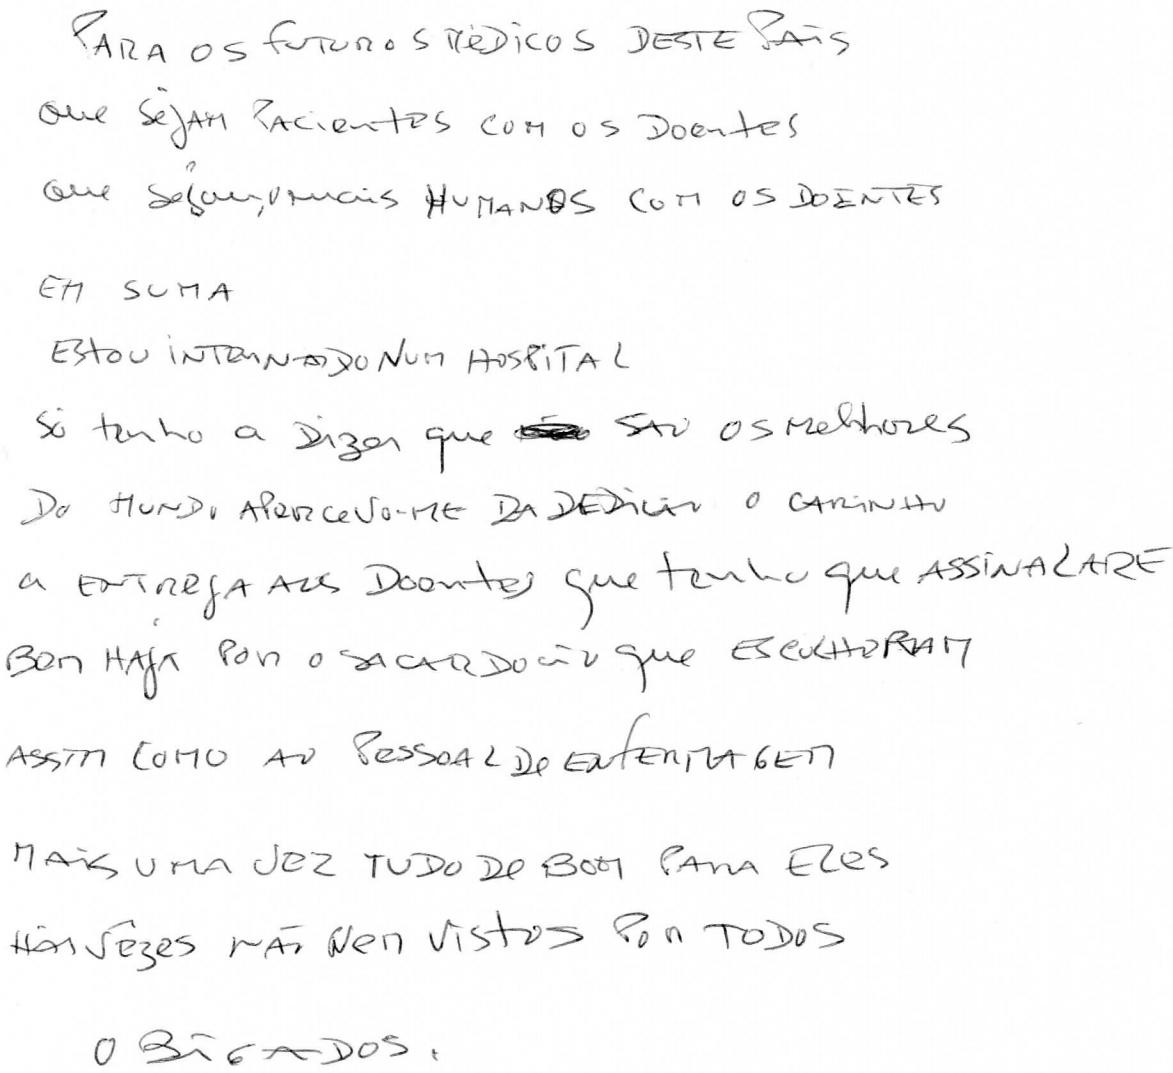 PARA OS FUTUROS MÉDICOS DESTE PAÍS
QUE SEJAM PACIENTES COM OS DOENTES
QUE HUMANOS COM OS DOENTES
EM SUMA
ESTOU INTERNADO NUM HOSPITAL
Só tenho a Dizer que SÃO OS Melhores
DO MUNDO DA O CARINHO
a ENTREGA AOS Doentes que tenho que ASSINALARE
Bem HAJA POR O que
ASSIM COMO AO PESSOAL DE ENFERMAGEM
MAIS UMA VEZ TUDO DE BOM PARA ELES
Vêzes NÃO Vistos POR TODOS